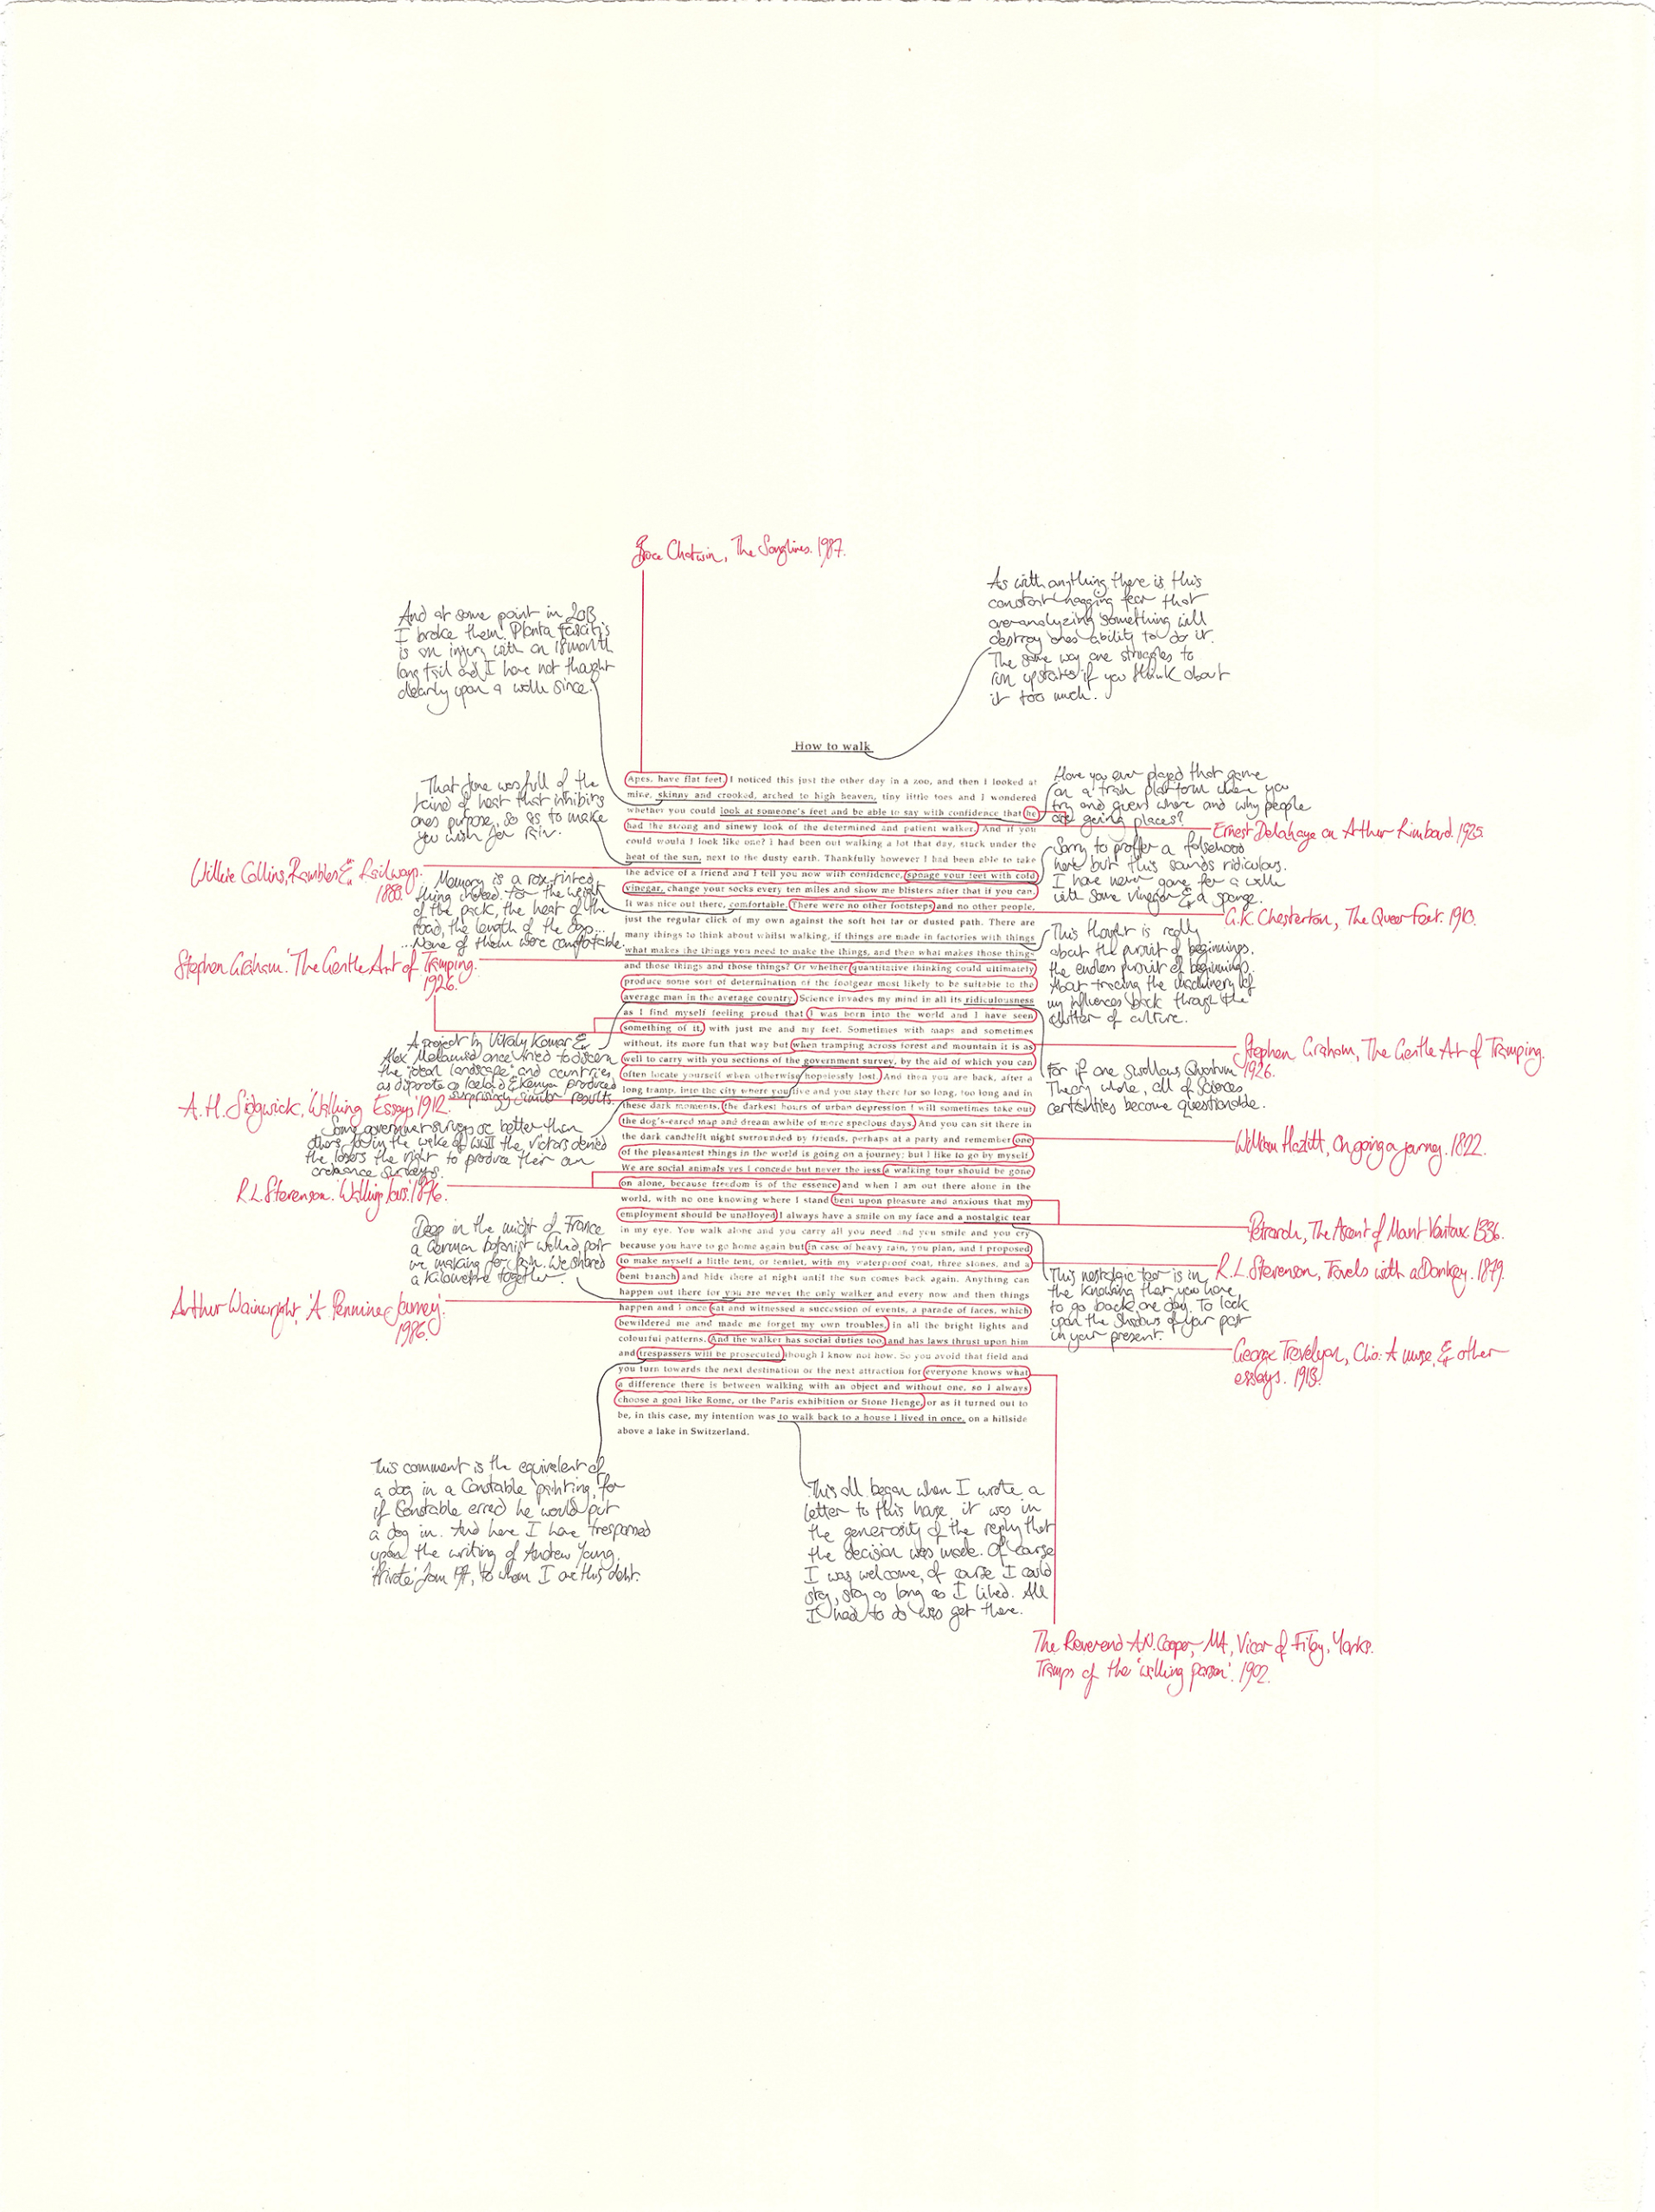 Bruce Chatwin, The Songlines. 1987.
As with anything, there is this
constant nagging fear that
overanalyzing something will
destroy ones ability to do it.
The same way one struggles to
run upstairs if you think about
it too much.
And at some point in 2013
I broke them. Planta fasciitis
is an injury with an 18 month
long tail and I have not thought
clearly upon a walk since.
How to walk
Apes, have flat feet. I noticed this just the other day in a zoo, and then I looked at
mine, skinny and crooked, arched to high heaven, tiny little toes and I wondered
whether you could look at someone's feet and be able to say with confidence that he
had the strong and sinewy look of the determined and patient walker. And if you
could would I look like one? I had been out walking a lot that day, stuck under the
heat of the sun, next to the dusty earth. Thankfully however I had been able to take
the advice of a friend and I tell you now with confidence, sponge your feet with cold
vinegar, change your socks every ten miles and show me blisters after that if you can.
It was nice out there, comfortable. There were no other footsteps and no other people,
just the regular click of my own against the soft hot tar or dusted path. There are
many things to think about whilst walking, if things are made in factories with things
what makes the things you need to make the things, and then what makes those things
and those things and those things? Or whether quantitative thinking could ultimately
produce some sort of determination of the footgear most likely to be suitable to the
average man in the average country. Science invades my mind in all its ridiculousness
as I find myself feeling proud that I was born into the world and I have seen
something of it, with just me and my feet. Sometimes with maps and sometimes
without, its more fun that way but when tramping across forest and mountain it is as
well to carry with you sections of the government survey, by the aid of which you can
often locate yourself when otherwise hopelessly lost. And then you are back, after a
long tramp, into the city where you live and you stay there for so long, too long and in
these dark moments, the darkest hours of urban depression I will sometimes take out
the dog's-eared map and dream awhile of more spacious days. And you can sit there in
the dark candlelit night surrounded by friends, perhaps at a party and remember one
of the pleasantest things in the world is going on a journey; but I like to go by myself.
We are social animals yes I concede but never the less a walking tour should be gone
on alone, because freedom is of the essence and when I am out there alone in the
world, with no one knowing where I stand bent upon pleasure and anxious that my
employment should be unalloyed I always have a smile on my face and a nostalgic tear
in my eye. You walk alone and you carry all you need and you smile and you cry
because you have to go home again but in case of heavy rain, you plan, and I proposed
to make myself a little tent, or tentlet, with my waterproof coat, three stones, and a
bent branch and hide there at night until the sun comes back again. Anything can
happen out there for you are never the only walker and every now and then things
happen and I once sat and witnessed a succession of events, a parade of faces, which
bewildered me and made me forget my own troubles, in all the bright lights and
colourful patterns. And the walker has social duties too and has laws thrust upon him
and trespassers will be prosecuted though I know not how. So you avoid that field and
you turn towards the next destination or the next attraction for everyone knows what
a difference there is between walking with an object and without one, so I always
choose a goal like Rome, or the Paris exhibition or Stone Henge, or as it turned out to
be, in this case, my intention was to walk back to a house I lived in once, on a hillside
above a lake in Switzerland.
That June was full of the
kind of heat that inhibits
ones purpose, so as to make
you wish for rain.
Wilkie Collins, Rambles & Railways.
1880.
Memory is a rose-tinted
thing indeed. For the weight
of the pack, the heat of the
road, the length of the days...
...None of them were comfortable.
Stephen Graham. 'The Gentle Art of Tramping.
1926.
A project by Vitaly Komar &
Alex Melamid once tried to discern
the 'ideal landscape' and countries
as disparate as Iceland & Kenya produced
surprisingly similar results.
A. H. Sidgwick, 'Walking Essays' 1912.
Some government surveys are better than
others, for in the wake of WWII the victors denied
the losers the right to produce their own
ordnance surveys.
R.L. Stevenson. 'Walking Tours.' 1876.
Deep in the midst of France
a German Botanist walked past
me making for Spain. We shared
a kilometre together.
Arthur Wainwright, 'A Pennine Journey.'
1986.
Have you ever played that game
on a train platform when you
try and guess where and why people
are going places?
Ernest Delahaye on Arthur Rimbaud. 1925.
Sorry to proffer a falsehood
here but this sounds ridiculous.
I have never gone for a walk
with some vinegar & a sponge.
G.K. Chesterton, The Queer Feet. 1910.
This thought is really
about the pursuit of beginnings.
the endless pursuit of beginnings.
About tracing the machinery of
my influences back through the
clutter of culture.
Stephen Graham, The Gentle Art of Tramping.
1926.
For if one swallows Quantum
Theory whole, all of Sciences
certainties become questionable.
William Hazlitt, On going a journey. 1822.
Petrarch, The Ascent of Mount Ventoux. 1336.
R.L. Stevenson, Travels with a Donkey. 1879.
This nostalgic tear is in
the knowing that you have
to go back, one day. To look
upon the shadows of your past
in your present.
George Trevelyan, Clio: A muse, & other
essays. 1913.
This comment is the equivalent of
a dog in a Constable painting, for
if Constable erred he would put
a dog in. And here I have trespassed
upon the writing of Andrew Young,
'Private', to whom I owe this debt.
This all began when I wrote a
letter to this house. it was in
the generosity of the reply that
the decision was made. Of course
I was welcome, of course I could
stay, stay as long as I liked. All
I had to do was get there.
The Reverend A.N. Cooper, MA, Vicar of Filey, Yorks.
Tramps of the 'walking parson'. 1902.